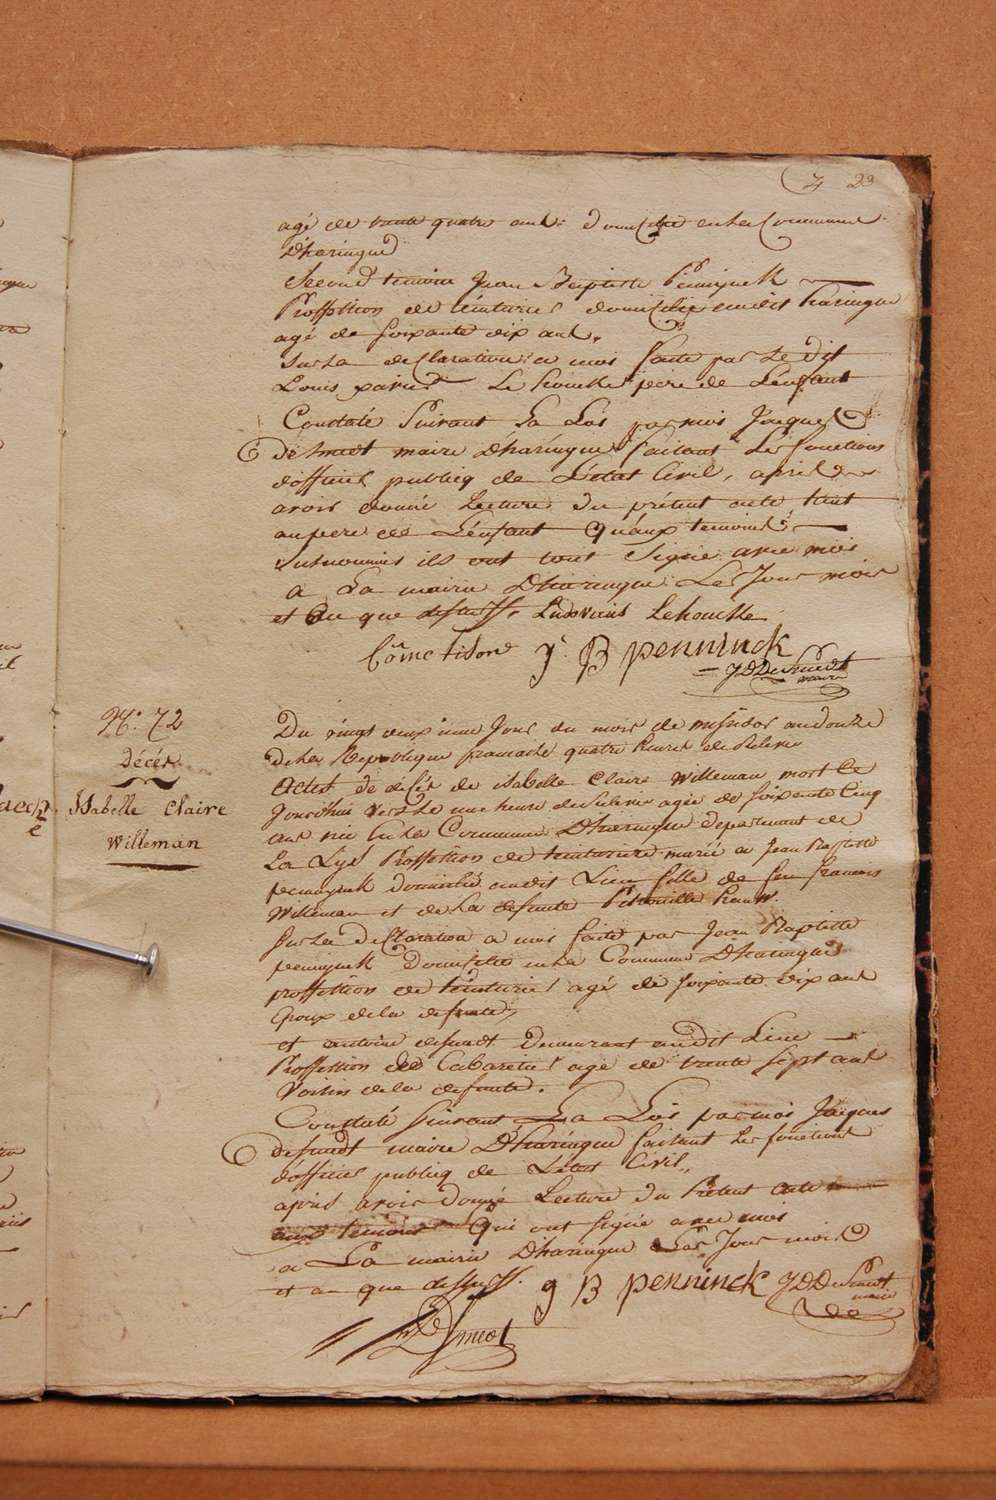 23
agé de trente quatre ans. domicilié en la Commune
D'haringue
Second temoin Jean Baptiste Peninyck
Proffession de teinturier domicilié audit haringue
agé de soixante dix ans.
sur la declaration a moi faite par le dit
Louis xavier Le houcke pere de L'enfant
Constaté Suivant La Loi par moi Jacques
desmedt maire D'haringue faisant Les fonctions
d'officier publiq de L'état Civil, apres
avoir donné Lecture du présent acte, tant
au pere de L'enfant Qu'aux temoins
surnommés ils ont tout Signé avec mois
a La mairie D'haringue Les Jour mois
et an que dessuss. Ludovicus Lehoucke
J. B penninck
JDDeSmedt
maire
N.º 72
décés
Isabelle Claire
Willeman
Du vingt deuxieme Jour du mois de messidor an douze
de La Republique francaise quatre heures de Relevée
Actes de décés de isabelle Claire Willeman mort Ce
Jourdhui vers Le une heure de Relevée agée de soixante Cinq
ans née en La Commune D'haringue departement de
La Lys Proffession de teinturiere mariée a Jean Baptiste
peninyck domicilié audit Lieu fille de feu francois
Willeman et de La defunte Petronille
sur La declaration a moi faite par Jean Baptiste
peninyck Domicilié en La Commune D'haringue
proffession de teinturier agé de soixante dix ans
Epoux de la defunte
et antoine desmedt Demeurant audit Lieu
Proffession de Cabaretier agé de trente sept ans
Voisin de la defunte.
Constaté Suivant La Loi par moi Jacques
desmedt maire D'haringue faisant Les fonctions
d'officier publiq de L'état Civil,
après avoir donné Lecture du Présent acte
aux temoins Qui ont signé avec mois
a La mairie D'haringue Les Jour mois
et an que dessuss. J B penninck JDDeSmedt
maire
DSmedt